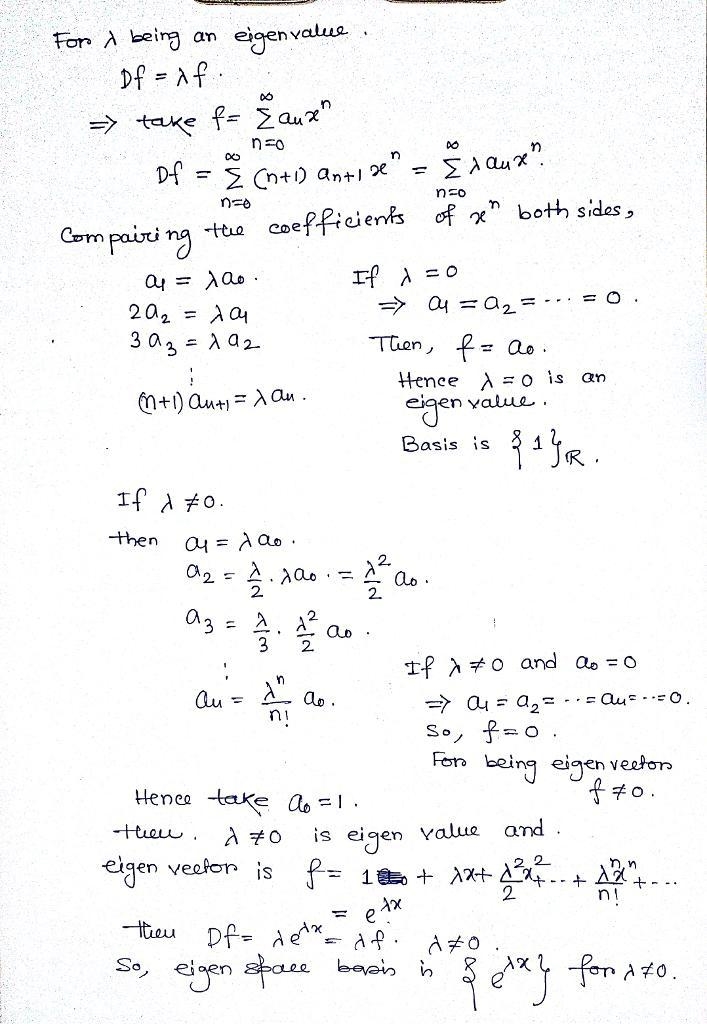 For λ being an eigenvalue.
Df = λf.
⇒ take f = ∑_{n=0}^{∞} a_n x^n
Df = ∑_{n=0}^{∞} (n+1) a_{n+1} x^n = ∑_{n=0}^{∞} λ a_n x^n.
Compairing the coefficients of x^n both sides,
a_1 = λa_0.
2a_2 = λa_1
3a_3 = λa_2
⋮
(n+1)a_{n+1} = λa_n.
If λ = 0
⇒ a_1 = a_2 = ... = 0.
Then, f = a_0.
Hence λ = 0 is an
eigen value.
Basis is {1}_ℝ.
If λ ≠ 0.
then a_1 = λa_0.
a_2 = λ/2 · λa_0 · = λ^2/2 a_0.
a_3 = λ/3 · λ^2/2 a_0.
⋮
a_n = λ^n/n! a_0.
If λ ≠ 0 and a_0 = 0
⇒ a_1 = a_2 = ... = a_n = ... = 0.
So, f = 0.
For being eigen vector
f ≠ 0.
Hence take a_0 = 1.
then. λ ≠ 0 is eigen value and.
eigen vector is f = 1 + λx + λ^2x^2/2 + ... + λ^n x^n/n! + ...
= e^{λx}
then Df = λe^{λx} = λf. λ ≠ 0.
So, eigen space basis is {e^{λx}} for λ ≠ 0.